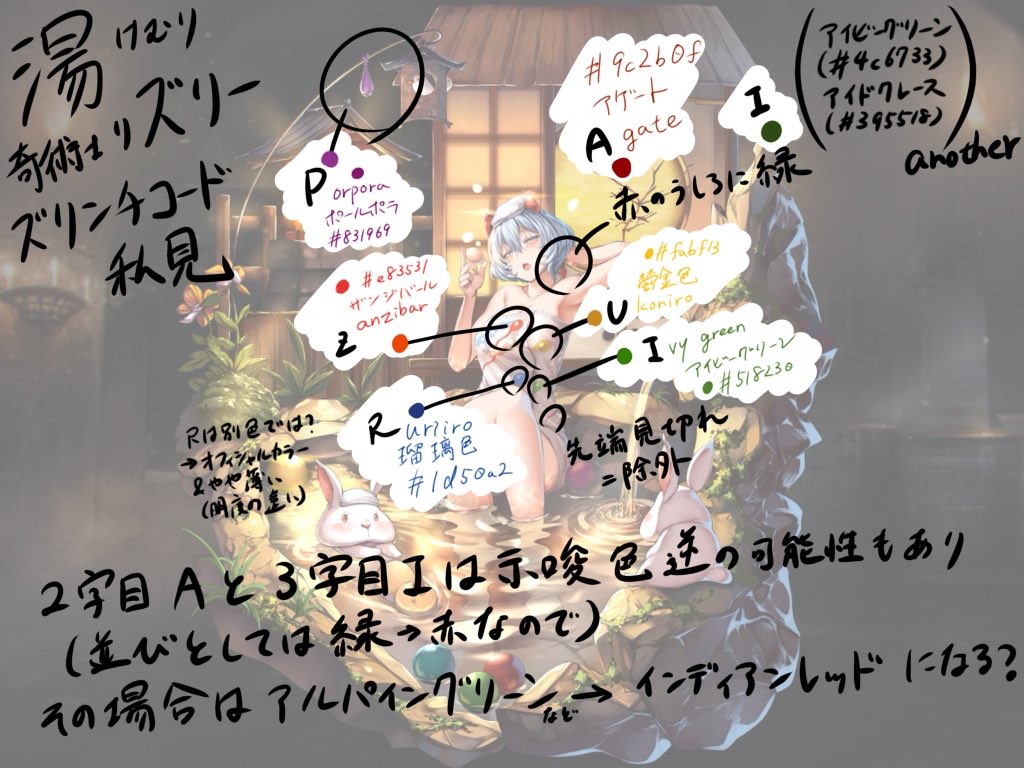 湯けむり
奇術士リズリー
ズリンチコード
私見
P orpora
ポールポラ
#831969
#9c2b0f
アゲート
A gate
I
(アイビーグリーン
(#4c6733)
アイドクレース
(#395518))
another
赤のうしろに緑
#e83531
ザンジバール
Z anzibar
#fabf13
鬱金色
U koniro
I vy green
アイビーグリーン
#518230
R uriiro
瑠璃色
#1d50a2
Rは別色では?
→オフィシャルカラー
&やや薄い
(明度の違い)
先端見切れ
=除外
2字目Aと3字目Iは示唆色逆の可能性もあり
(並びとしては緑→赤なので)
その場合はアルパイングリーンなど→インディアンレッドになる?